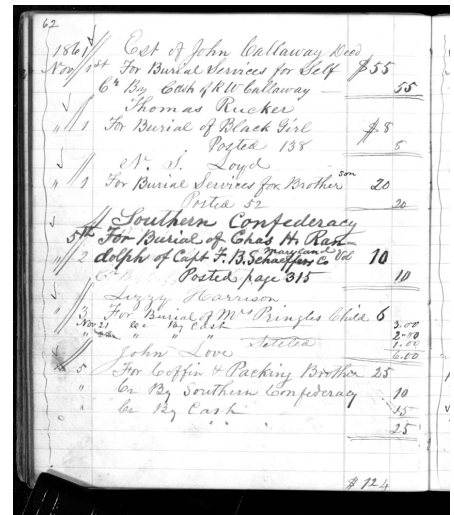 62
1861 Est of John Callaway Decd
Nov 1st For Burial Services for Self $55
Cr By Cash of R W Callaway 55
Thomas Rucker
" 1 For Burial of Black Girl $8
Posted 138 8
N. S. Loyd
" 1 For Burial Services for Brother son 20
Posted 52 20
Southern Confederacy
5th For Burial of Chas H. Ran-
" 2 dolph of Capt F. B. Schaeffers Co Maryland Vol 10
Posted page 315 10
Lizzy Harrison
" 3 For Burial of Mrs Pringles Child 6
Nov 21 By Cash 3.00
" " " 2.00
Settled 1.00
John Love 6.00
" 5 For Coffin & Packing Brother 25
" Cr By Southern Confederacy 10
" Cr By Cash 15
" " 25
$124